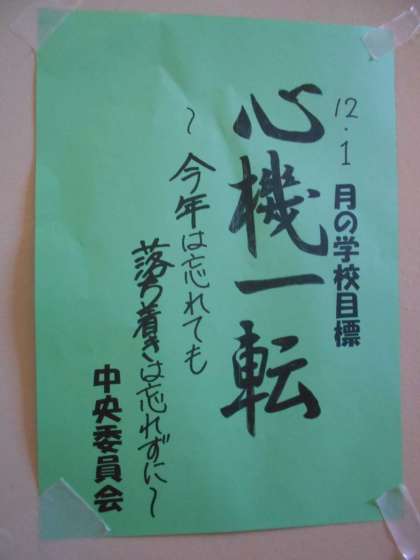 12・1月の学校目標
心機一転
～今年は忘れても
落ち着きは忘れずに～
中央委員会